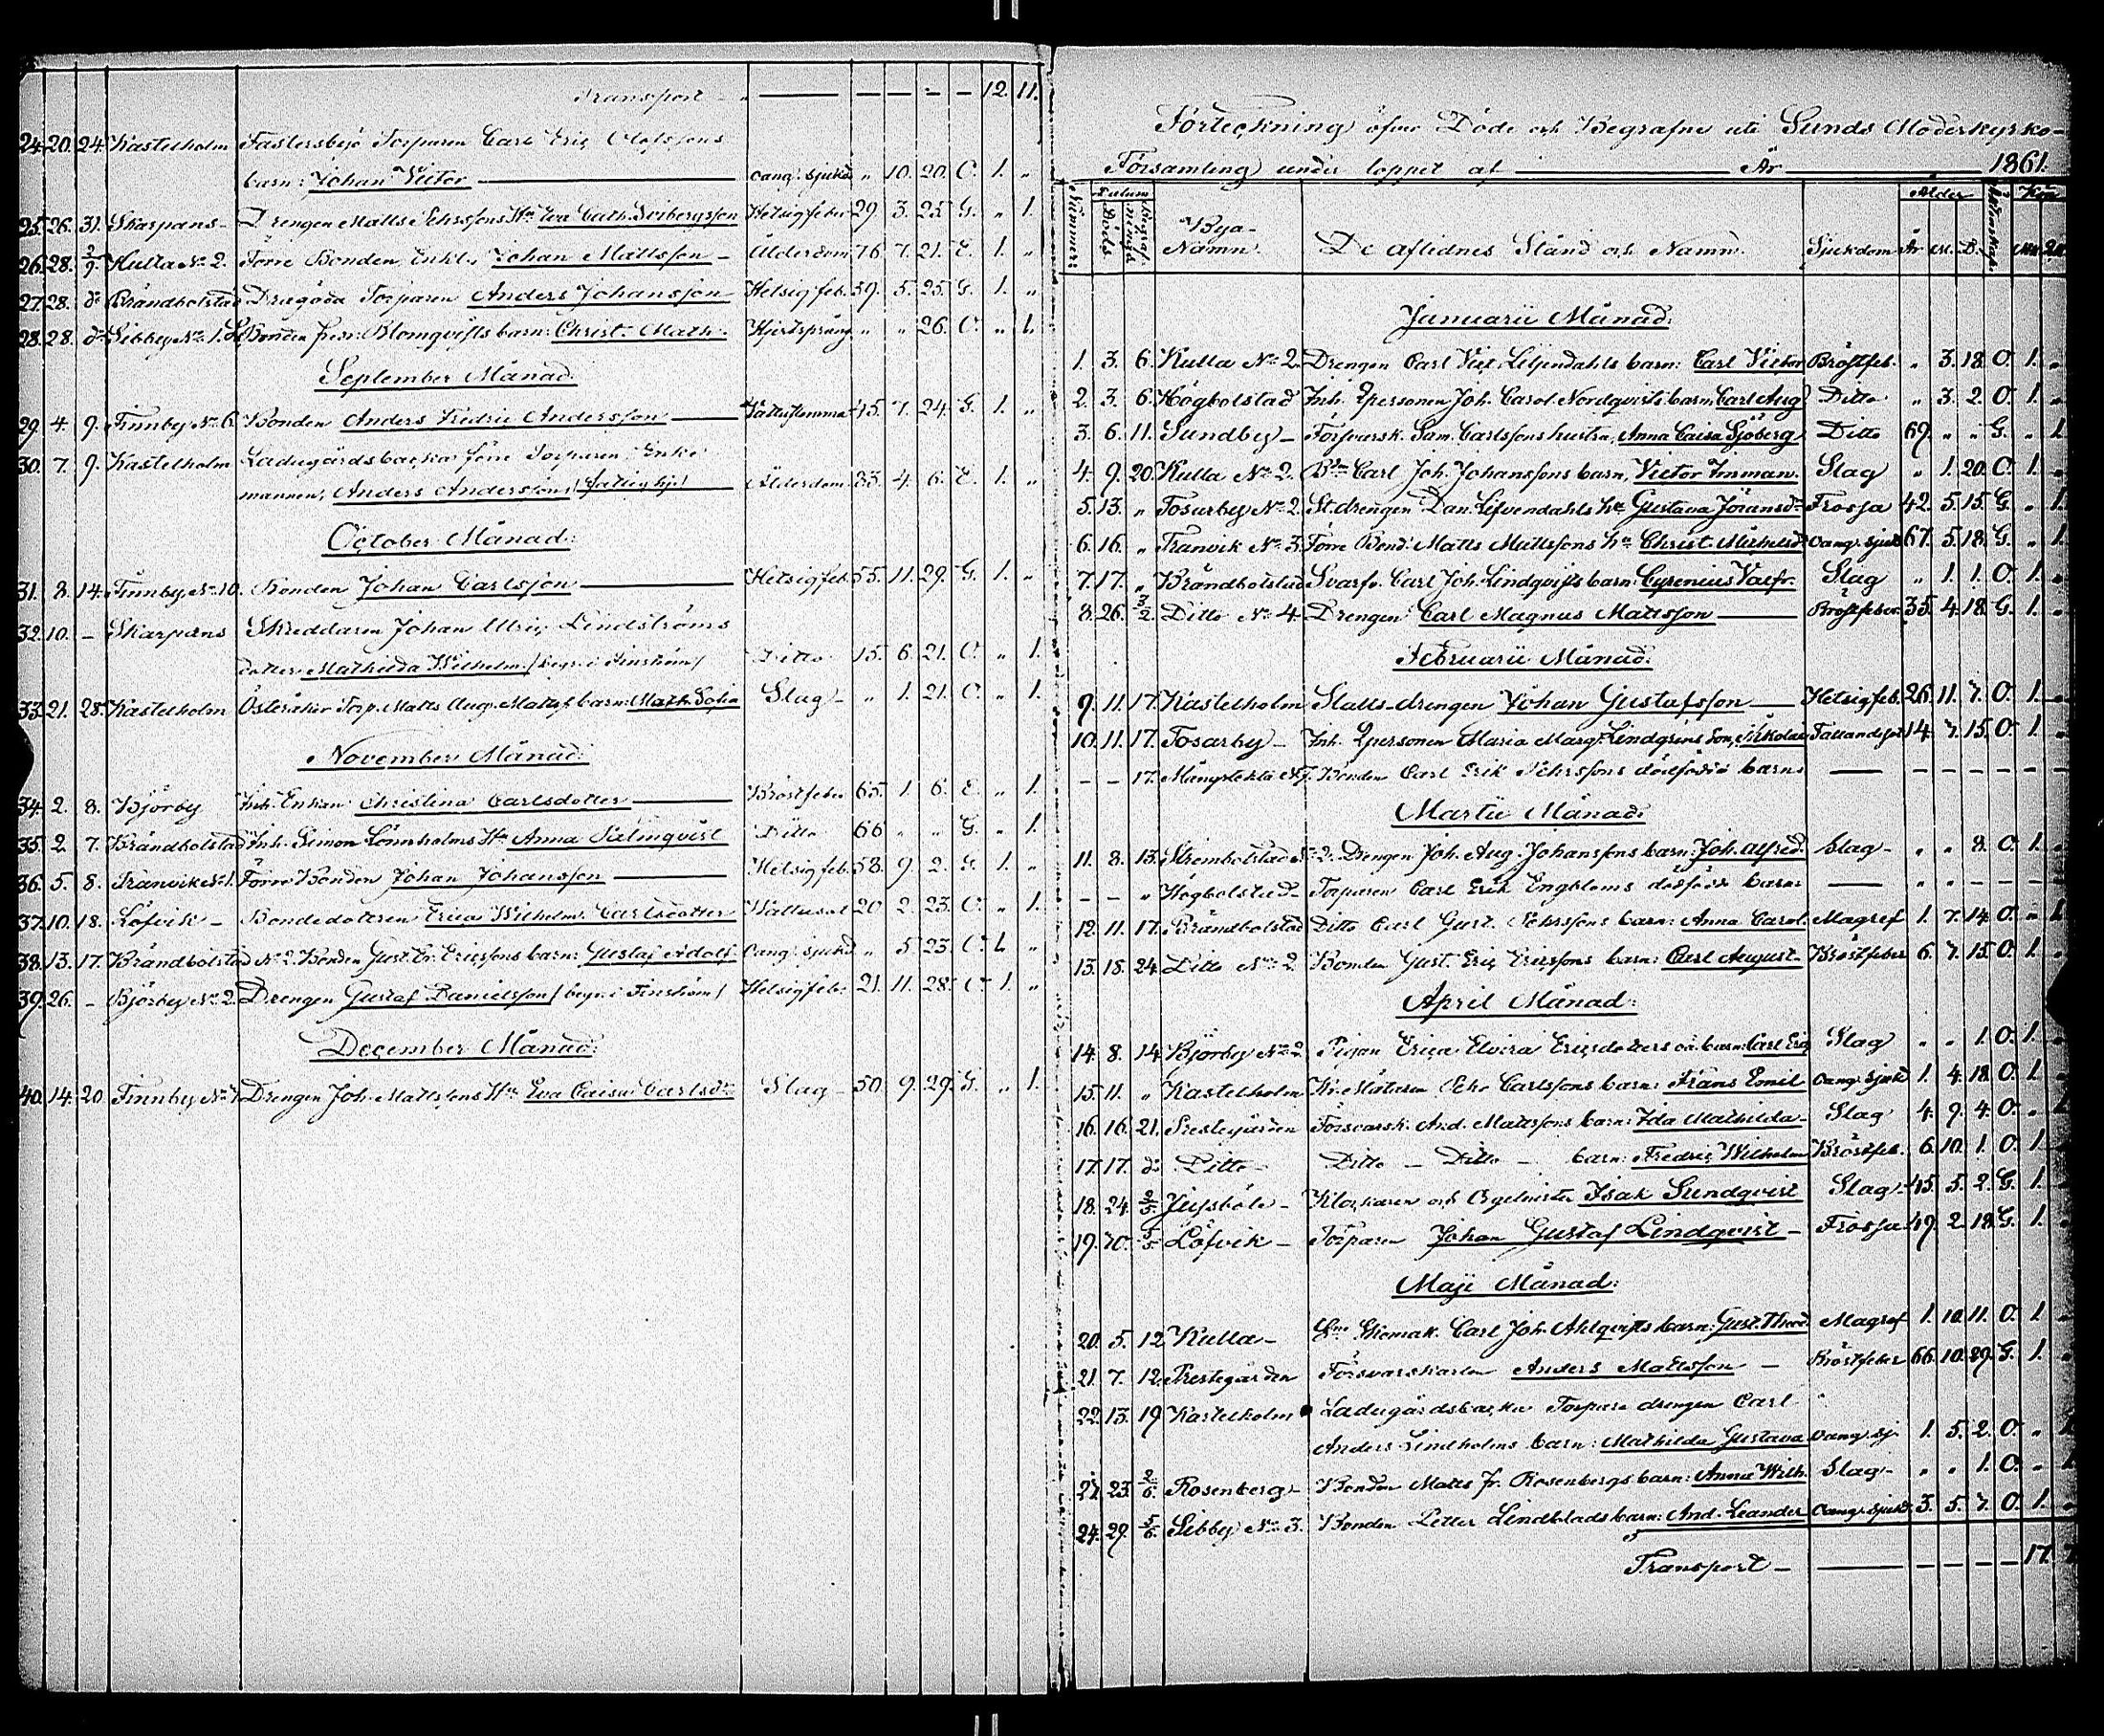 Transport — — — — — 12. 11.
24. 20. 24. Kastelholm Fastersbyö Torparen Carl Eric Olofssons
barn: Johan Victor oang. sjukd. " 10. 20. O. 1. "
25. 26. 31. Skarpans – Drengen Matts Pehrssons Hu Eva Cath. Hetsigfeber 29. 3. 25. G. " 1.
26. 28. 2/9. Kulla No 2. Förre Bonden, Enkl., Johan Mattsson – Ålderdom 76. 7. 21. E. 1. "
27. 28. do Brändbolstad Torparen Anders Johansson Hetsigfeb. 59. 5. 25. G. 1. "
28. 28. do Sibby No 1. Bonden Blomqvists barn: Christ. Math. " " 26. O. " 1.
September Månad:
29. 4. 9. Finnby No 6. Bonden Anders Fredric Andersson 45. 7. 24. G. 1. "
30. 7. 9. Kastelholm Ladugårdsbacka förre Torparen, Enke
mannen, Anders Andersson Ålderdom 83. 4. 6. E. 1. "
October Månad:
31. 8. 14. Finnby No 10. Bonden Johan Carlsson Hetsigfeb. 55. 11. 29. G. 1. "
32. 10. – Skarpans Skreddaren Johan Ulric Lindströms
dotter Mathilda Wilhelm. / begr. i Finström / Ditto 15. 6. 21. O. " 1.
33. 21. 28. Kastelholm Österåker Torp. Matts Aug. Matts. barn: Math. Sofia Slag – " 1. 21. O. " 1.
November Månad:
34. 2. 8. Björby Inh. Enkan Christina Carlsdotter Bröstfeber 65. 1. 6. E. " 1.
35. 2. 7. Brändbolstad Inh. Simon Lönnholms Hu Anna Palmqvist Ditto 66 " " G. " 1.
36. 5. 8. Tranvik No 1. Förre Bonden Johan Johansson Hetsigfeb. 58. 9. 2. G. 1. "
37. 10. 18. Löfvik – Bondedottren Erica Wilhelm. Carlsdotter Wattusot 20. 2. 23. O. " 1.
38. 13. 17. Brändbolstad No 2. Bonden Gust. Er. Ericssons barn: Gustaf Adolf oang. sjukd. " 5. 23. O. 1. "
39. 26. – Björby No 2. Drengen Gustaf Danielsson / begr. i Finström / Hetsigfeb. 21. 11. 28. O. 1. "
December Månad:
40. 14. 20. Finnby Drengen Joh. Mattssons Hu Eva Caisa Carlsdr Slag – 50. 9. 29. G. " 1.
Förteckning öfver Döde och Begrafne uti Sunds Moderkyrko-
Församling under loppet af — År — 1861.
Nummer: Datum Döds Begrafnings Bya-Namn. De aflidnes Stånd och Namn. Sjukdom Ålder År M. D. Kön M.k. Q.k.
Januarii Månad:
1. 3. 6. Kulla No 2. Drengen Carl Vict. Liljendahls barn: Carl Victor Bröstfeb. " 3. 18. O. 1. "
2. 3. 6. Högbolstad Inh. Qpersonen Joh. Carol. Nordqvists barn: Carl Aug. Ditto " 3. 2. O. 1. "
3. 6. 11. Sundby – Försvarsk. Sam. Carlssons hustru, Anna Caisa Sjöberg Ditto 69. " " G. " 1.
4. 9. 20. Kulla No 2. Bdn Carl Joh. Johanssons barn, Victor Inman. Slag " 1. 20. O. 1. "
5. 13. " Tosarby No 2. St.drengen Dan. Lefvendahls hu Gustava Jöransdr Frossa 42. 5. 15. G. " 1.
6. 16. " Tranvik No 3. Förre Bond. Matts Mattssons hu Christ. Michelsdr oang. sjukd. 67. 5. 18. G. " 1.
7. 17. " Brändbolstad Svarfv. Carl Joh. Lindqvists barn: Cyrenius Valfr. Slag " 1. 1. O. 1. "
8. 26. 3/2. Ditto No 4. Drengen Carl Magnus Mattsson Bröstfeber 35. 4. 18. G. 1. "
Februarii Månad:
9. 11. 17. Kastelholm Stalls-drengen Johan Gustafsson Hetsigfeb. 26. 11. 7. O. 1. "
10. 11. 17. Tosarby – Inh. Qpersonen Maria Marg. Lindgrens Son, Nikolai Fallandesot 14. 7. 15. O. 1. "
– – 17. Mångstekta Bonden Carl Erik Pehrssons dödfödde barn — – – – – – –
Martii Månad:
11. 8. 13. Strömbolstad No 2. Drengen Joh. Aug. Johanssons barn: Joh. Alfred. Slag – " " 8. O. 1. "
– – " Högbolstad – Torparen Carl Erik Engbloms dödfödde barn: — " " – – – –
12. 11. 17. Brändbolstad Ditto Carl Gust. Pehrssons barn: Anna Carol. Magref 1. 7. 14. O. " 1.
13. 18. 24. Ditto No 2. Bonden Gust. Eric Ericssons barn: Carl August. Bröstfeber 6. 7. 15. O. 1. "
April Månad:
14. 8. 14. Björby No 2. Pigan Erica Elvira Ericsdotters oä. barn: Carl Eric Slag " " 1. O. 1. "
15. 11. " Kastelholm Pehr Carlssons barn: Frans Emil oang. sjukd. 1. 4. 18. O. 1. "
16. 16. 21. Prestegården Försvarsk. And. Mattssons barn: Ida Mathilda Slag 4. 9. 4. O. " 1.
17. 17. do Ditto – Ditto – Ditto – barn: Fredric Wilhelm Bröstfeb. 6. 10. 1. O. 1. "
18. 24. 2/5. Jussböle – Klockaren och Orgelnisten Isak Sundqvist Slag 45. 5. 2. G. 1. "
19. 30. 5/5. Löfvik – Torparen Johan Gustaf Lindqvist – Frossa 49. 2. 18. G. 1. "
Maji Månad:
20. 5. 12. Kulla – Carl Joh. Ahlqvists barn: Gust. Theod. Magref 1. 10. 11. O. 1. "
21. 7. 12. Prestegården Försvarskarlen Anders Mattsson – Bröstfeber 66. 10. 29. G. 1. "
22. 13. 19. Kastelholm Ladugårdsbacka Torpare drengen Carl
Anders Lindholms barn: Mathilda Gustava oang. sj. 1. 5. 2. O. " 1.
23. 23. 2/6. Rosenberg – Bonden Matts Fr. Rosenbergs barn: Anna Wilh. Slag – " " 1. O. " 1.
24. 29. 5/6. Sibby No 3. Bonden Petter Lindblads barn: And. Leander oang. sjukd. 3. 5. 7. O. 1. "
Transport – — – – – – 17. 7